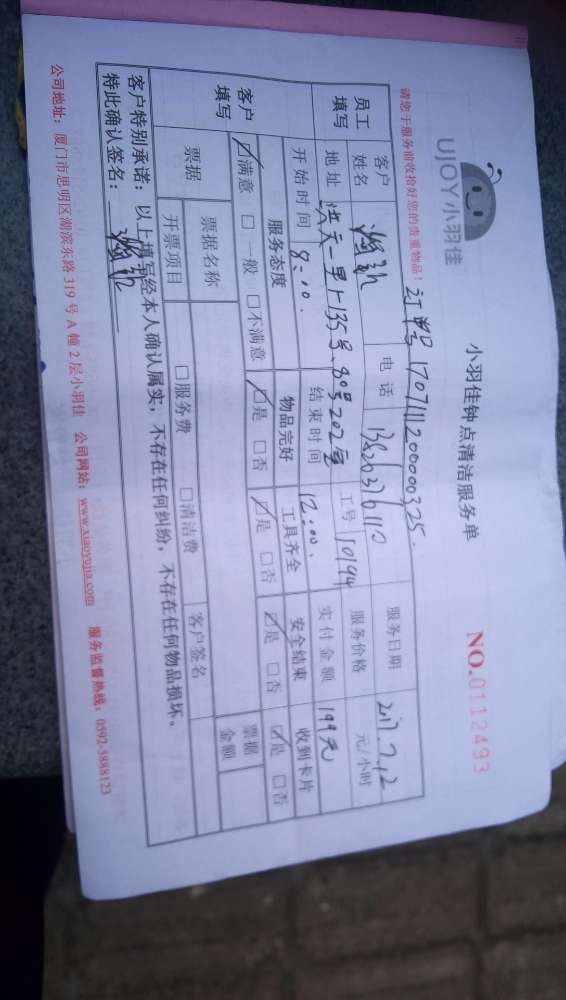 UJOY小羽佳
小羽佳钟点清洁服务单
NO.0112493
请您于服务前收拾好您的贵重物品!
订单号 170711120000325.
员工填写
客户姓名
电话
服务日期 2017.7.12
地址
工号 10194
服务价格 元/小时
开始时间 8:00.
结束时间 12:00.
实付金额 199元
客户填写
服务态度 物品完好 工具齐全 安全结束 收到卡片
☑满意 □一般 □不满意 ☑是 □否 ☑是 □否 ☑是 □否 ☑是 □否
票据
票据名称
票据金额
开票项目 □服务费 □清洁费 客户签名
客户特别承诺:以上填写经本人确认属实,不存在任何纠纷,不存在任何物品损坏。
特此确认签名:
公司地址:厦门市思明区湖滨东路319号A幢2层小羽佳 公司网站:www.xiaoyujia.com 服务监督热线:0592-5888123